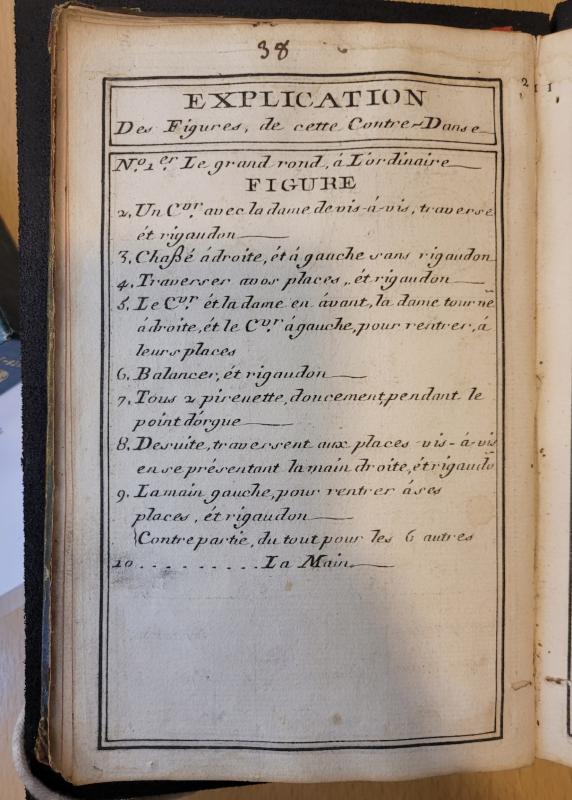 38
EXPLICATION
Des Figures, de cette Contre-Danse
N.o 1.er Le grand rond, á L'ordinaire
FIGURE
2, Un C.er avec la dame de vis-á-vis, traverse
ét rigaudon
3, Chaßé ádroite, ét á gauche sans rigaudon
4, Traverser avos places, ét rigaudon
5, Le C.er ét la dame en ávant, la dame tourne
ádroite, ét le C.er ágauche, pour rentrer, á
leurs places
6, Balancer, ét rigaudon
7, Tous 2 pirenette, doucement, pendant le
point dórgue
8, Desuite, traversent aux places vis-á-vis
en se présentant la main droite, ét rigaudo
9, La main gauche, pour rentrer áses
places, ét rigaudon
Contre partie, du tout pour les 6 autres
10 . . . . . . . . . . La Main.
2